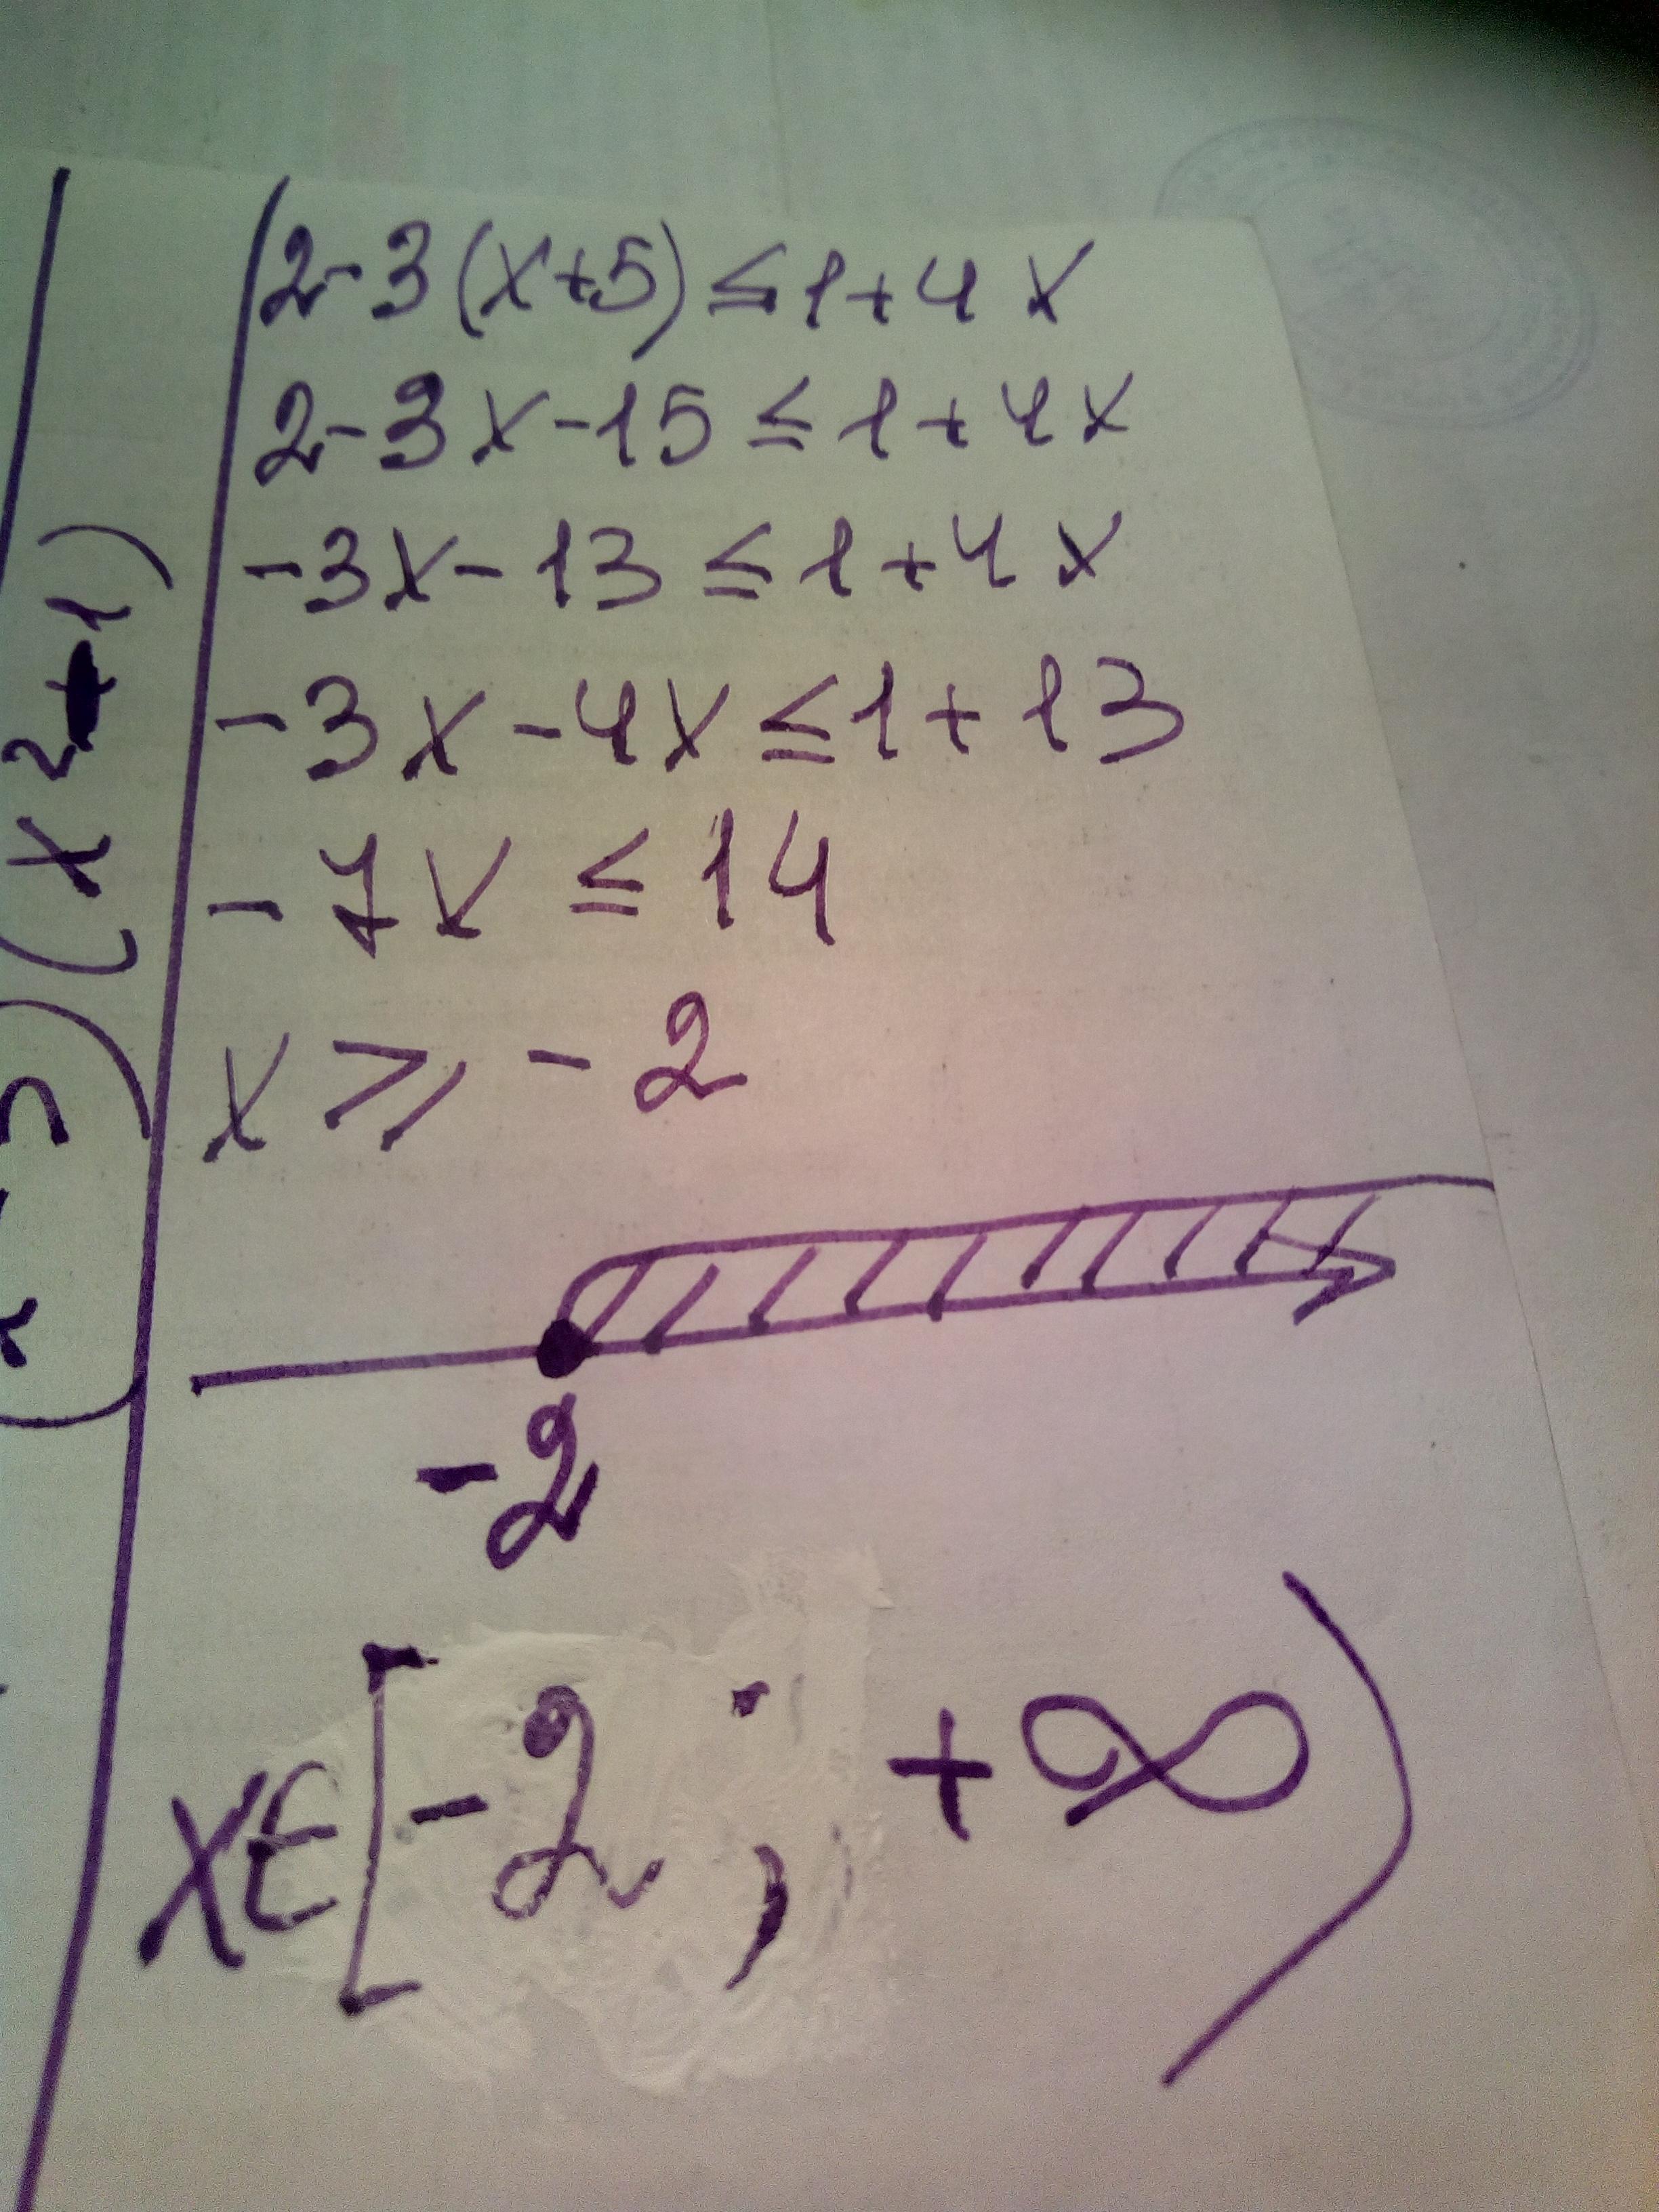 2-3(x+5)≤1+4x
2-3x-15≤1+4x
-3x-13≤1+4x
-3x-4x≤1+13
-7x≤14
x⩾-2
-2
x∈[-2;+∞)
(x²+1)